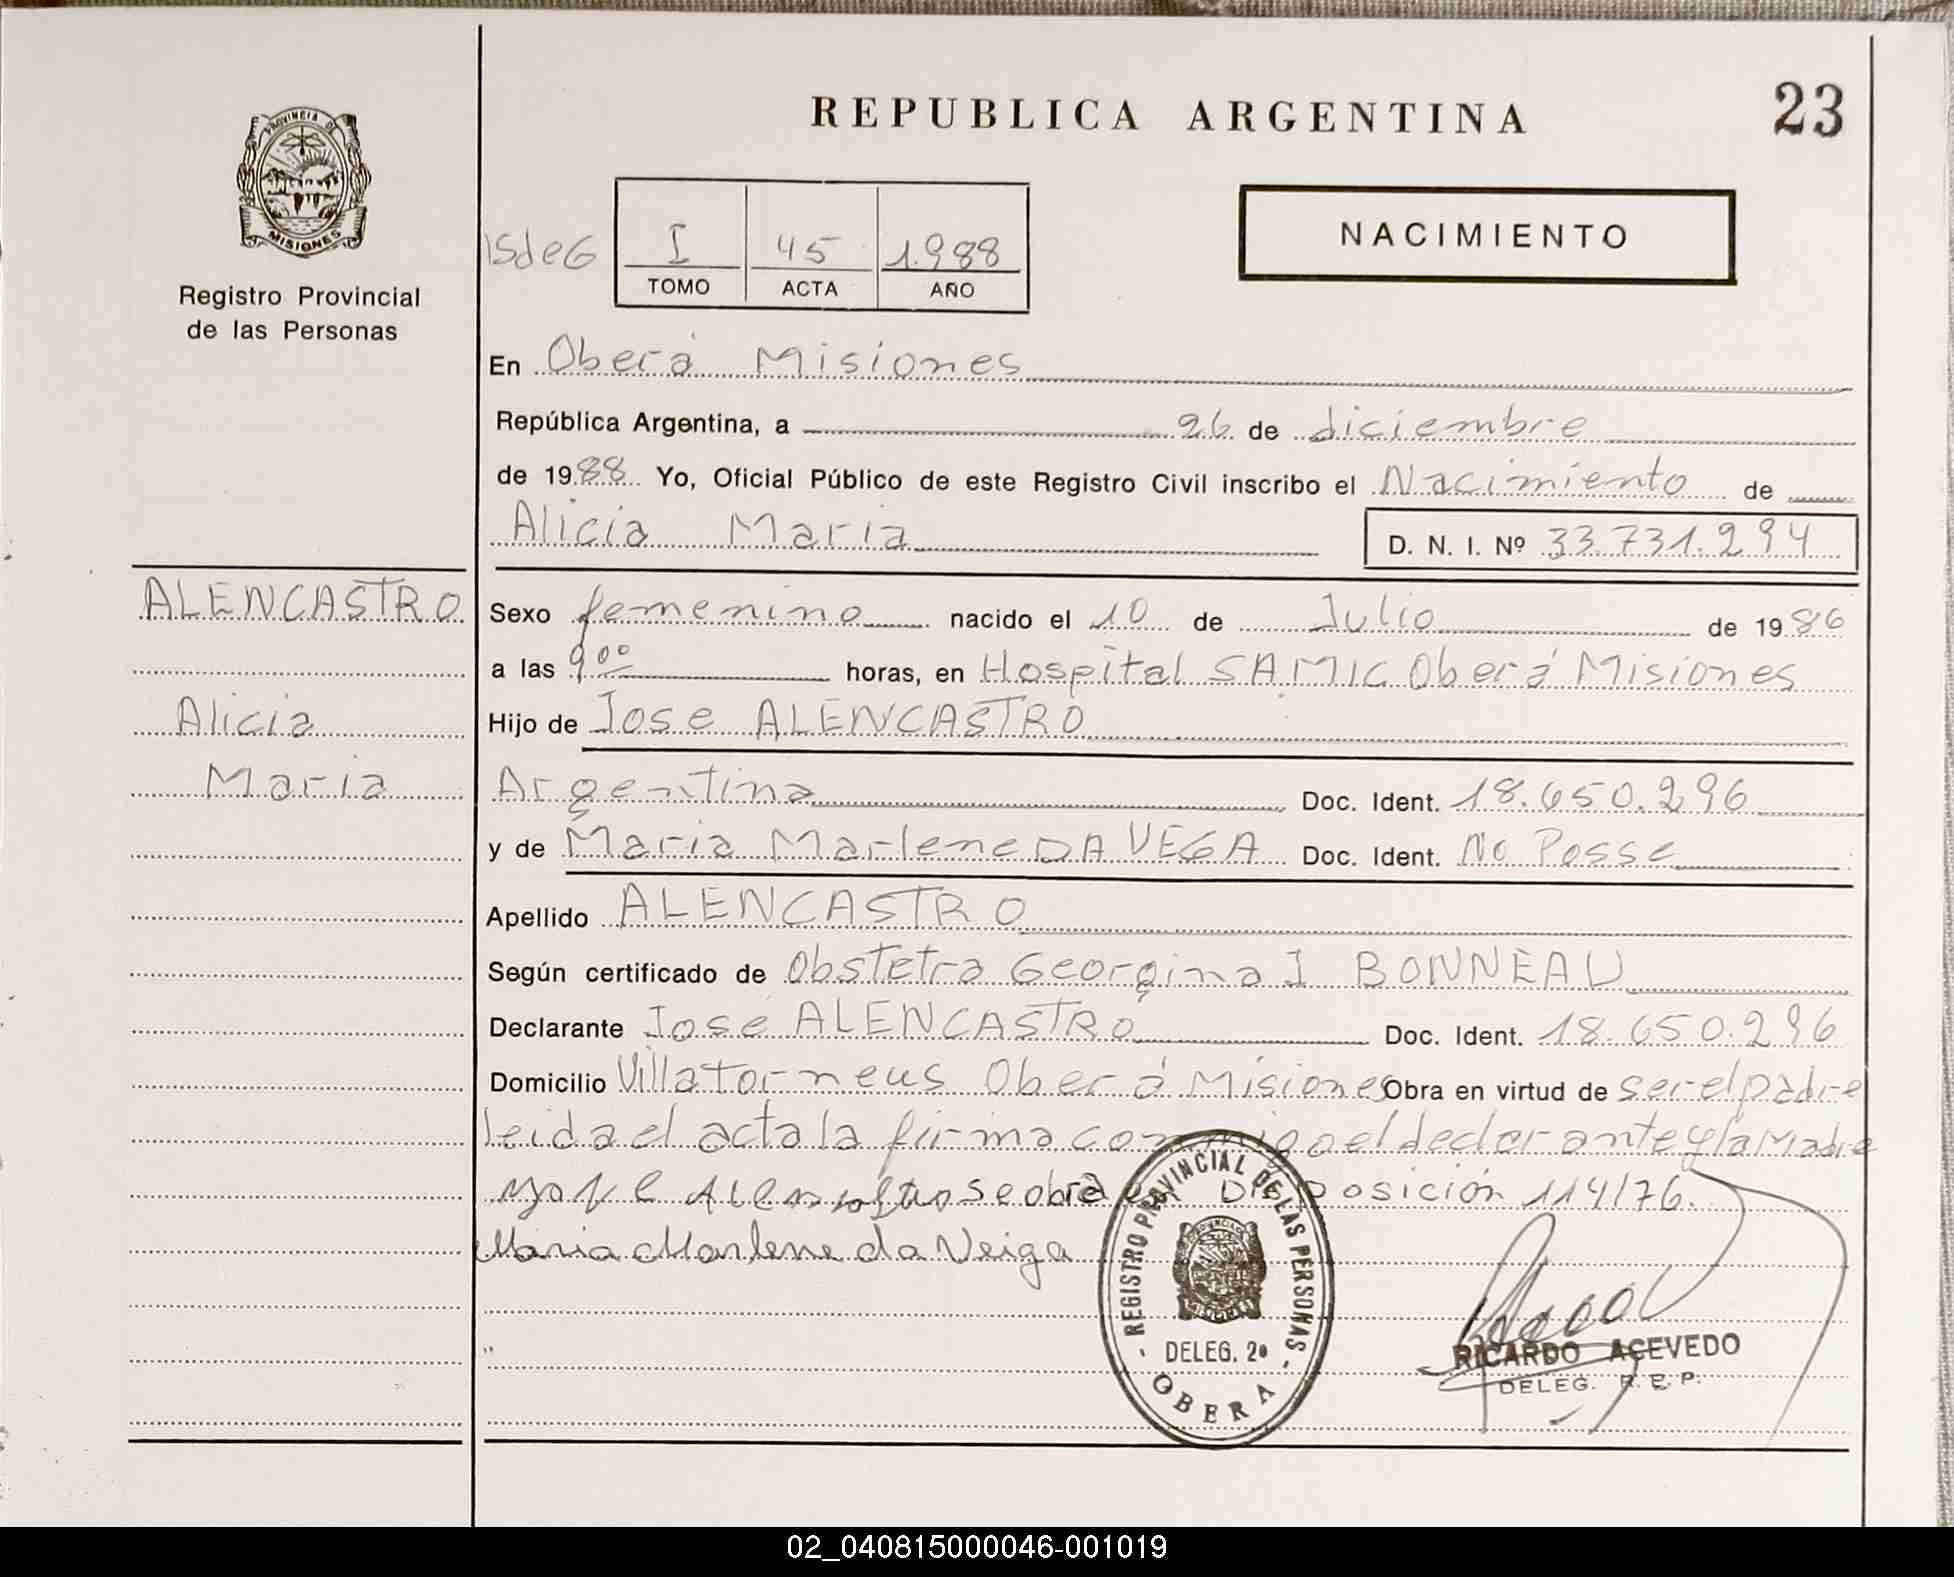 REPUBLICA ARGENTINA
23
PROVINCIA DE
MISIONES
Registro Provincial
de las Personas
NACIMIENTO
ISdeG
I 45 1.988
TOMO ACTA AÑO
En Oberá Misiones
República Argentina, a 26 de diciembre
de 1988 Yo, Oficial Público de este Registro Civil inscribo el Nacimiento de
Alicia Maria
D. N. I. Nº 33.731.294
ALENCASTRO
Alicia
Maria
Sexo femenino nacido el 10 de Julio de 1986
a las 9 00 horas, en Hospital SAMIC Oberá Misiones
Hijo de Jose ALENCASTRO
Argentina Doc. Ident. 18.650.296
y de Maria Marlene DA VEGA Doc. Ident. No Posse
Apellido ALENCASTRO
Según certificado de Obstetra Georgina I BONNEAU
Declarante José ALENCASTRO Doc. Ident. 18.650.296
Domicilio Villa torneus Oberá Misiones Obra en virtud de ser el padre
leida el acta la firma conmigo el declarante y la Madre
se obra en Disposición 114/76.
Maria Marlene da Veiga
REGISTRO PROVINCIAL DE LAS PERSONAS
DELEG. 2ª
OBERA
RICARDO ACEVEDO
DELEG. R.E.P.
02_040815000046-001019